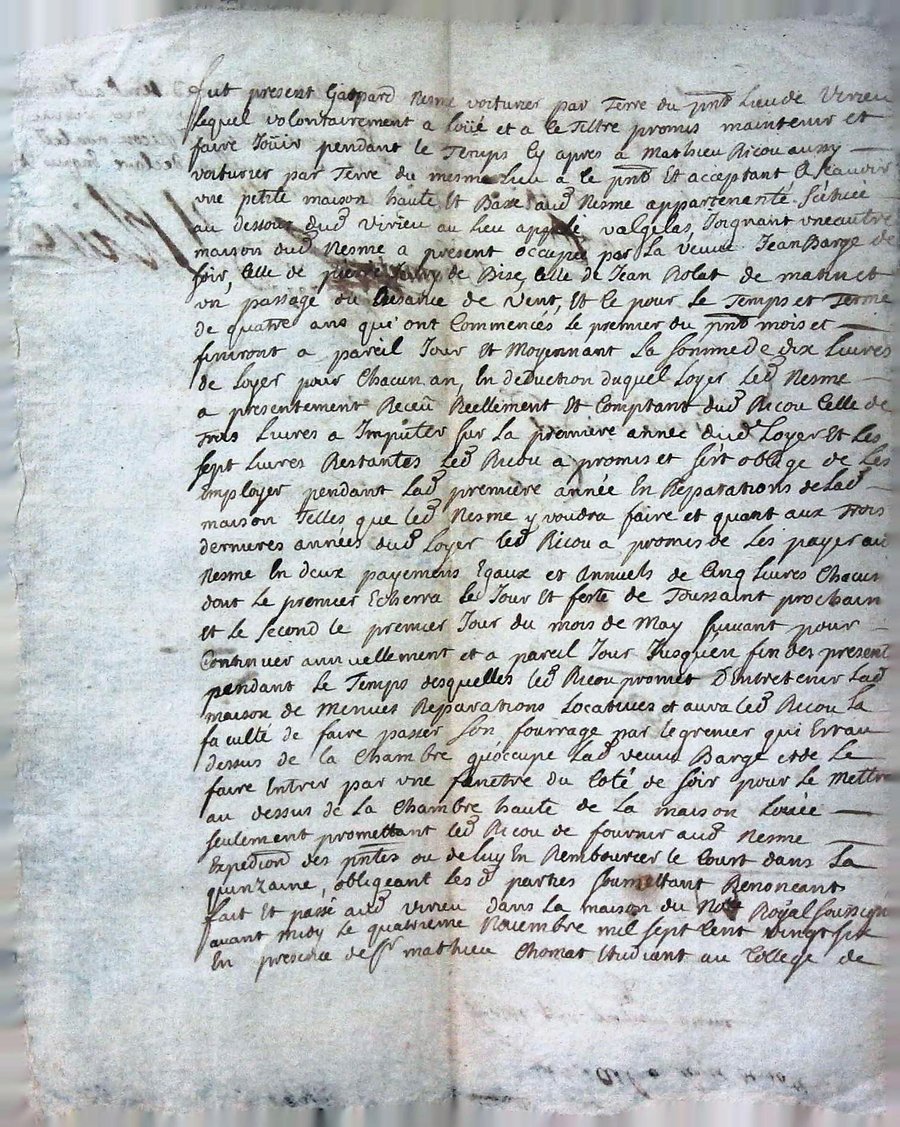 fut present Gaspard Nesme voiturier par Terre du pnt Lieu de Virieu
Lequel volontairement a Loüé et a ce Tiltre promis maintenir et
faire Joüir pendant le Temps Cy apres a Mathieu Ricou aussy
voiturier par Terre du mesme Lieu a ce pnt Et acceptant A scavoir
vne petite maison haute Et Basse aud Nesme appartenante Scituée
au dessous dud Virieu au Lieu appellé valgelas, Joignant vne autre
maison dud Nesme a present occupée par La veuve Jean Barge de
soir, Celle de pierre de Bise, Celle de Jean Rolat de matin et
vn passage ou Aisance de Vent, Et Ce pour Le Temps et Terme
de quatre ans qui ont Commencés Le premier du pnt mois et
finiront a pareil Jour Et Moyennant La somme de dix Livres
de Loyer pour Chacun an, En deduction duquel Loyer Led Nesme
a presentement Receu Reellement Et Comptant dud Ricou Celle de
Trois Livres a Imputer sur La premiere année dud Loyer Et Les
sept Livres Restantes Led Ricou a promis et s'est obligé de Les
Employer pendant Lad premiere année En Reparations de Lad
maison Telles que Led Nesme y voudra faire et quant aux Trois
dernieres années dud Loyer Led Ricou a promis de Les payer au
Nesme En deux payemens Egaux et Annuels de Cinq Livres Chacun
dont Le premier Echerra Le Jour Et feste de Toussaint prochain
et Le second Le premier Jour du mois de May suivant pour
Continuer annuellement et a pareil Jour Jusqu'en fin des presentes
pendant Le Temps desquelles Led Ricou promet D'Entretenir Lad
maison de Menues Reparations Locatives et aura Led Ricou La
faculté de faire passer son fourrage par Le grenier qui Est au
dessus de La Chambre qu'occupe Lad veuve Barge et de Le
faire Entrer par vne fenêtre du Coté de soir pour Le Mettre
au dessus de La Chambre haute de La maison Loüée
seulement promettant Led Ricou de fournir aud Nesme
Expedion des pntes ou de Luy En Rembourser Le Court dans La
quinzaine, obligeant Lesd parties soumettant Renonceant
fait Et passé aud Virieu dans La maison du Notre Royal soussigné
avant midy Le quatrieme Novembre mil sept Cent vingt six
En presence de Sr mathieu Chomat Etudiant au College de